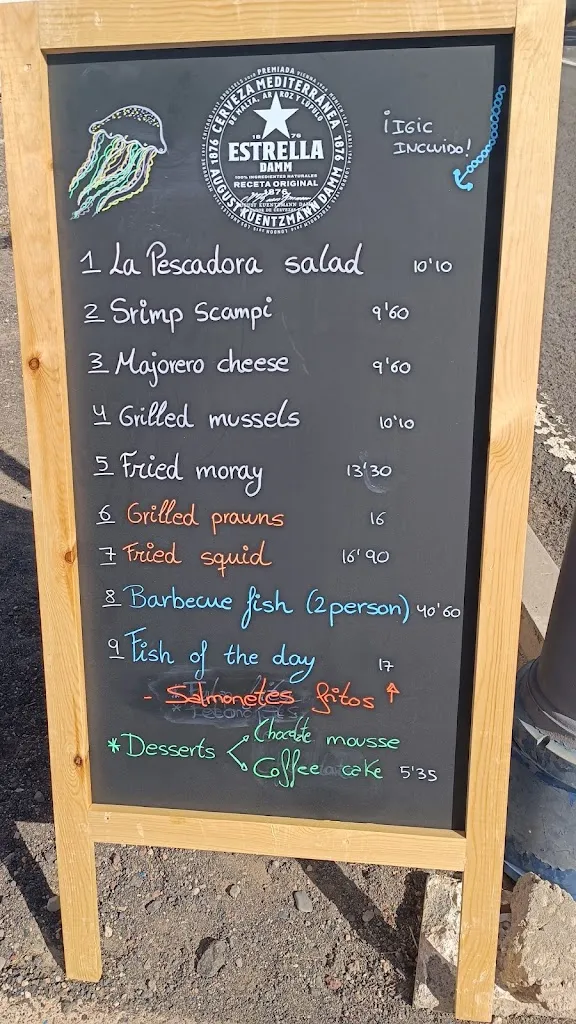 PREMIADA
CERVEZA MEDITERRÁNEA
DE MALTA, ARROZ Y LÚPULO
1876 1876
18 76
ESTRELLA
DAMM
100% INGREDIENTES NATURALES
RECETA ORIGINAL
1876
AUGUST KUENTZMANN DAMM
¡IGIC
INCLUIDO!
1 La Pescadora salad 10'10
2 Srimp Scampi 9'60
3 Majorero cheese 9'60
4 Grilled mussels 10'10
5 Fried moray 13'30
6 Grilled prawns 16
7 Fried squid 16'90
8 Barbecue fish (2person) 40'60
9 Fish of the day 17
- Salmonetes fritos ↑
* Desserts < Chocolate mousse
Coffee cake 5'35